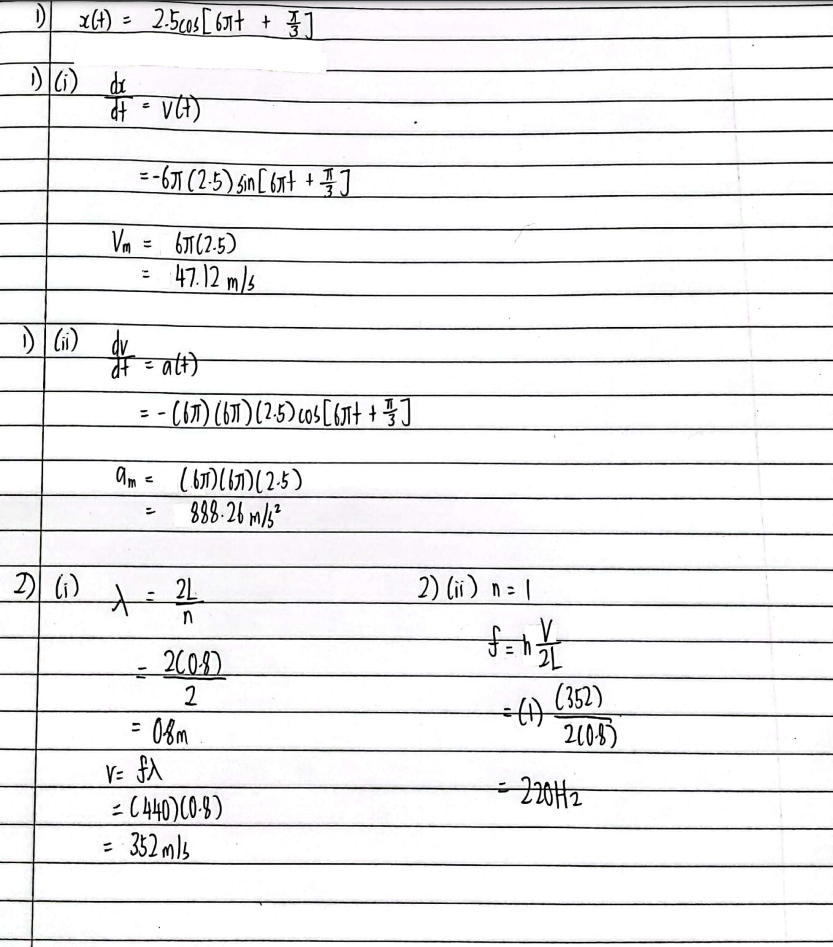 1) x(t) = 2.5cos[6πt + π/3]
1) (i) dx/dt = v(t)
= -6π(2.5) sin[6πt + π/3]
Vm = 6π(2.5)
= 47.12 m/s
1) (ii) dv/dt = a(t)
= -(6π)(6π)(2.5)cos[6πt + π/3]
am = (6π)(6π)(2.5)
= 888.26 m/s²
2) (i) λ = 2L/n
= 2(0.8)/2
= 0.8m
v = fλ
= (440)(0.8)
= 352 m/s
2) (ii) n = 1
f = n V/2L
= (1) (352)/2(0.8)
= 220Hz